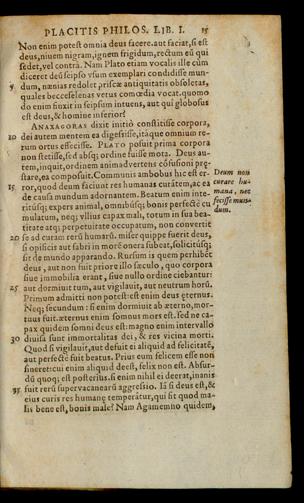 PLACITIS PHILOS. LIB. I. 15
Non enim potest omnia deus facere. aut faciat, si est
deus, niuem nigram, ignem frigidum, rectum eũ qui
sedet, vel contrà. Nam Plato etiam vocalis ille cùm
diceret deũ seipso vsum exemplari condidisse mun-
5 dum, nænias redolet priscæ antiquitatis obsoletas,
quales becceselenas vetus comœdia vocat. quomo
do enim fiuxit in seipsum intuens, aut qui globosus
est deus, & homine inferior?
ANAXAGORAS dixit initiò constitisse corpora,
10 dei autem mentem ea digessisse, itáque omnium re-
rum ortus effecisse. PLATO posuit prima corpora
non stetisse, sed absq; ordine fuisse mota. Deus au-
tem, inquit, ordinem animaduertens cõfusioni præ-
stare, ea composuit. Communis ambobus hic est er-
15 ror, quod deum faciunt res humanas curátem, ac ea
de causa mundum adornantem. Beatum enim inte-
ritúsq; expers animal, omnibúsq; bonis perfectè cu
mulatum, neq; vllius capax mali, totum in sua bea-
titate atq; perpetuitate occupatum, non conuertit
20 se ad curam rerũ humanarũ. miser quippe fuerit deus,
si opificis aut fabri in morẽ onera subeat, solicitúsq;
sit de mundo apparando. Rursum is quem perhibẽt
deus, aut non fuit priore illo sæculo, quo corpora
siue immobilia erant, siue nullo ordine ciebantur:
25 aut dormiuit tum, aut vigilauit, aut neutrum horũ.
Primum admitti non potest: est enim deus ęternus.
Neq; secundum: si enim dormiuit ab æterno, mor-
tuus fuit. æternus enim somnus mors est. sed ne ca-
pax quidem somni deus est: magno enim interuallo
30 diuisa sunt immortalitas dei, & res vicina morti.
Quod si vigilauit, aut defuit ei aliquid ad felicitatẽ,
aut perfectè fuit beatus. Prius eum felicem esse non
sineret: cui enim aliquid deest, felix non est. Absur-
dũ quoq; est posterius. si enim nihil ei deerat, inanis
35 fuit rerũ superuacanearũ aggressio. Iã si deus est, &
eius curis res humanę temperátur, qui sit quod ma-
lis bene est, bonis malè? Nam Agamemno quidem,
Deum non
curare hu-
mana, nec
fecisse mun-
dum.